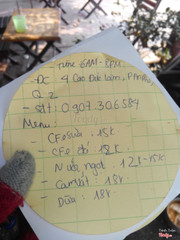 - Time 6AM - 8PM
- ĐC 4 Cao Đức Lân, P. An Phú
Q 2
- Sđt: 0907.306584
Menu:
- CFe sữa: 15k
- CFe đá: 12k
- Nước ngọt: 12k-15k
- Cam vắt: 18k
- Dừa: 18k